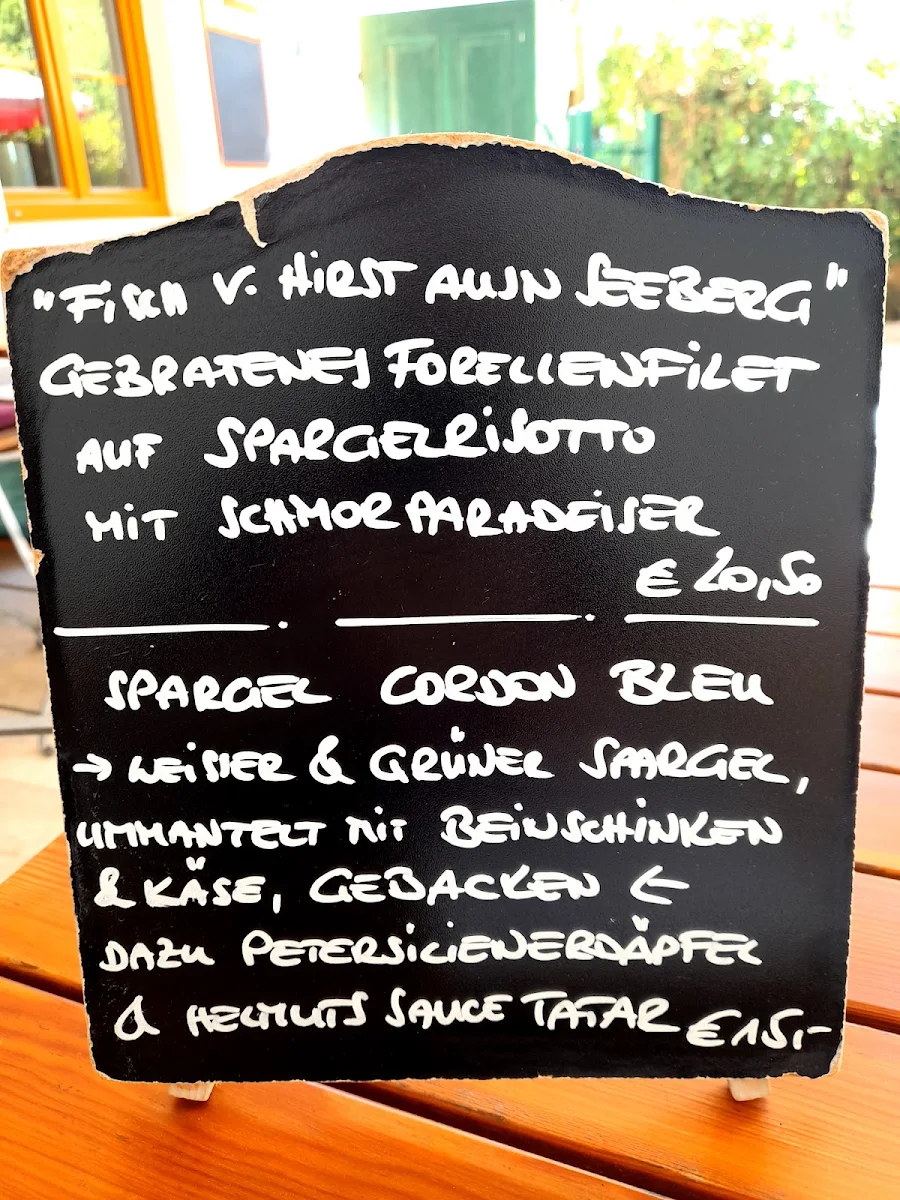 "FiSCH V. HIRST AUS'N SEEBERG"
GEBRATENES FORELLENFILET
AUF SPARGELRISOTTO
MIT SCHMORPARADEISER
€ 20,50
SPARGEL CORDON BLEU
→ WEISSER & GRÜNER SPARGEL,
UMMANTELT MIT BEINSCHINKEN
& KÄSE, GEBACKEN ←
DAZU PETERSILIENERDÄPFEL
& HELMUTS SAUCE TATAR €15,-